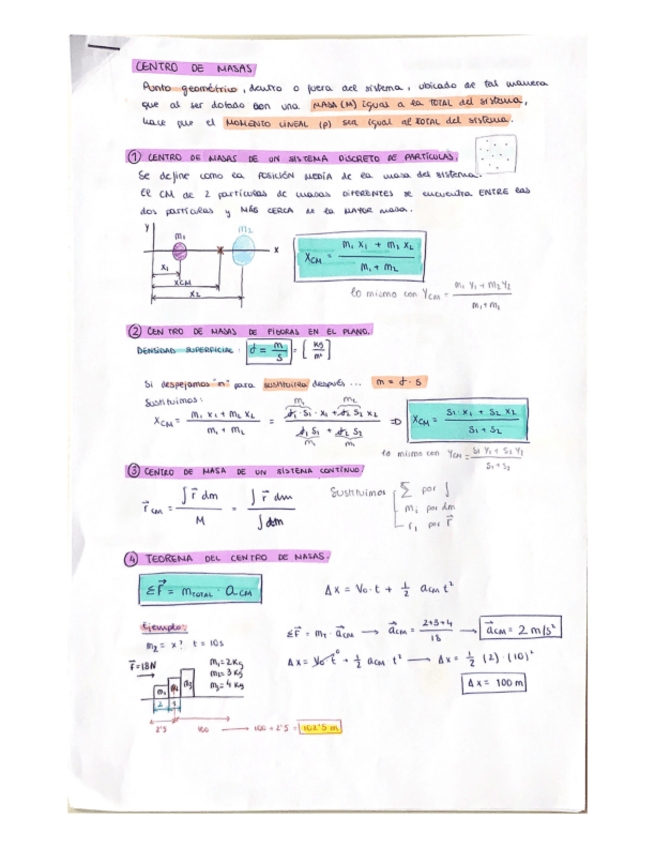 CENTRO DE MASAS
Punto geométrico, dentro o fuera del sistema, ubicado de tal manera
que al ser dotado con una MASA (M) igual a la TOTAL del sistema,
hace que el MOMENTO LINEAL (p) sea igual al TOTAL del sistema.
① CENTRO DE MASAS DE UN SISTEMA DISCRETO DE PARTÍCULAS.
Se define como la POSICIÓN MEDIA de la masa del sistema.
El CM de 2 partículas de masas DIFERENTES se encuentra ENTRE las
dos partículas y MÁS CERCA de la MAYOR masa.
y m₁ m₂ x
x₁
xCM
x₂
XCM = (m₁ x₁ + m₂ x₂) / (m₁ + m₂)
lo mismo con YCM = (m₁ Y₁ + m₂ Y₂) / (m₁ + m₂)
② CENTRO DE MASAS DE FIGURAS EN EL PLANO.
DENSIDAD SUPERFICIAL: σ = m/S = [kg/m²]
Si despejamos "m" para sustituirla después ... m = σ · S
Sustituimos:
XCM = (m₁ x₁ + m₂ x₂) / (m₁ + m₂) = (σ₁ · S₁ · x₁ + σ₂ S₂ x₂) / (σ₁ S₁ + σ₂ S₂) ⇒ XCM = (S₁ · x₁ + S₂ x₂) / (S₁ + S₂)
lo mismo con YCM = (S₁ Y₁ + S₂ Y₂) / (S₁ + S₂)
③ CENTRO DE MASA DE UN SISTEMA CONTINUO.
r⃗CM = ∫ r⃗ dm / M = ∫ r⃗ dm / ∫ dm
Sustituimos
Σ por ∫
mᵢ por dm
r₁ por r⃗
④ TEOREMA DEL CENTRO DE MASAS.
ΣF⃗ = mTOTAL · aCM
Δx = V₀ · t + ½ aCM t²
Ejemplo:
m₂ = x? t = 10s
F⃗ = 18N
m₁ = 2Kg
m₂ = 3Kg
m₃ = 4Kg
m₁ m₂ m₃
2 3
2'5 100 → 100 + 2'5 = 102'5 m
ΣF⃗ = mT · a⃗CM → a⃗CM = (2+3+4)/18 → a⃗CM = 2 m/s²
Δx = V₀ t⁰ + ½ aCM t² → Δx = ½ (2) · (10)²
Δx = 100 m